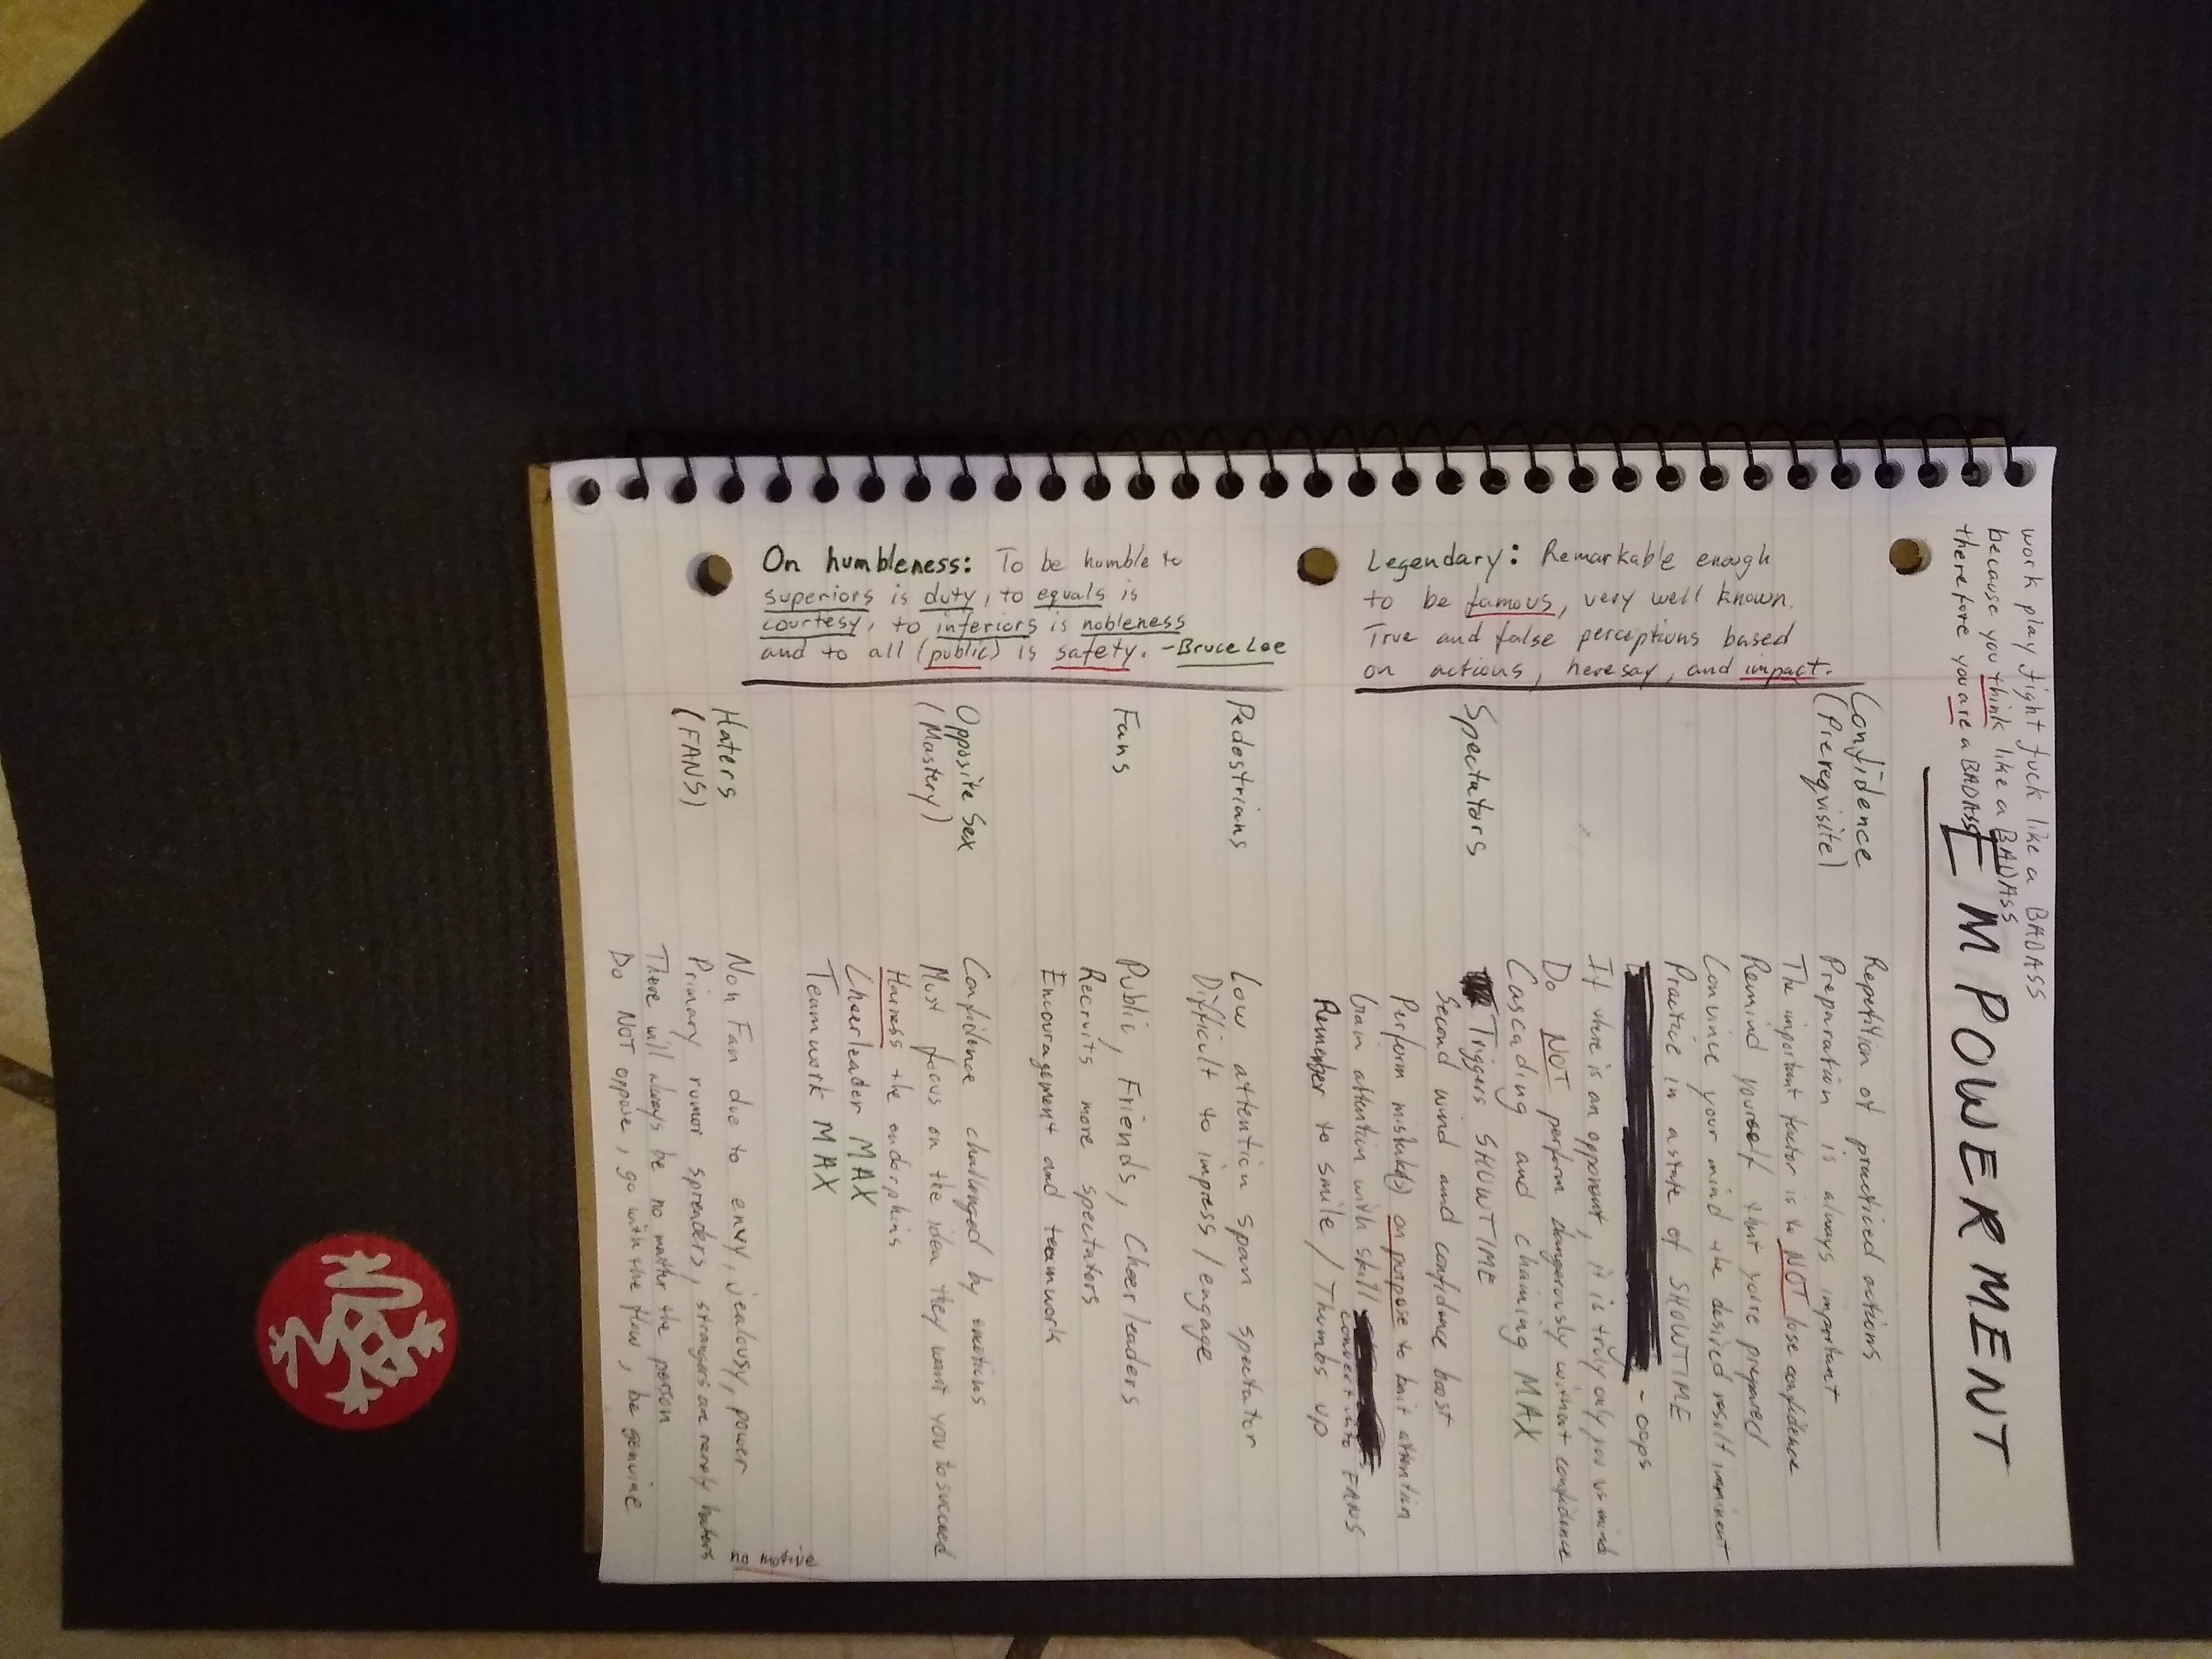 work play fight fuck like a BADASS
because you think like a BADASS
therefore you are a BADASS
EMPOWERMENT
Confidence
(Prerequisite)
Repetition of practiced actions
Preparation is always important
The important factor is to NOT lose confidence
Remind yourself that you're prepared
Convince your mind the desired result imminent
Practice in a state of SHOWTIME
- oops
If there is an opponent, it is truly only you vs mind
Do NOT perform dangerously without confidence
Cascading and chaining MAX
Spectators
Triggers SHOWTIME
Second wind and confidence boost
Perform mistake(s) on purpose to bait attention
Gain attention with skill convert into FANS
Remember to smile / Thumbs up
Pedestrians
Low attention span spectator
Difficult to impress / engage
Fans
Public, Friends, Cheerleaders
Recruits more spectators
Encouragement and teamwork
Opposite Sex
(Mastery)
Confidence challenged by emotions
Must focus on the idea they want you to succeed
Harness the endorphins
Cheerleader MAX
Teamwork MAX
Haters
(FANS)
Non Fan due to envy, jealousy, power
Primary rumor spreaders, strangers are rarely haters
no motive
There will always be no matter the person
Do NOT oppose, go with the flow, be genuine
Legendary: Remarkable enough
to be famous, very well known.
True and false perceptions based
on actions, heresay, and impact.
On humbleness: To be humble to
superiors is duty, to equals is
courtesy, to inferiors is nobleness
and to all (public) is safety. -Bruce Lee